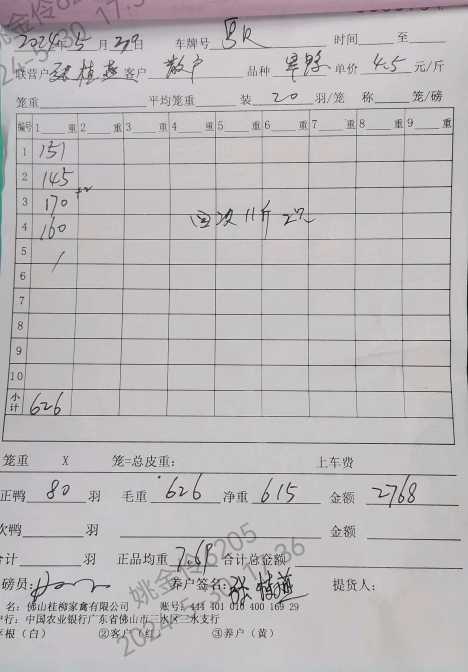 2024年5月29日 车牌号 时间 至
联营户 张桂燕 客户 散户 品种 单价 4.5 元/斤
笼重 平均笼重 装 20 羽/笼 称 笼/磅
编号 1 重 2 重 3 重 4 重 5 重 6 重 7 重 8 重 9 重
1 151
2 145
3 170 +2
4 160 11斤
5 /
6
7
8
9
10
小计 626
笼重 X 笼=总皮重： 上车费
正鸭 80 羽 毛重 626 净重 615 金额 2768
次鸭 羽 金额
合计 羽 正品均重 7.69 合计总金额
磅员： 养户签名： 提货人：
名：佛山桂柳家禽有限公司 账号：444 401 010 400 169 29
行：中国农业银行广东省佛山市三水区三水支行
存根（白） ②客户（红） ③养户（黄）
姚金伶6205